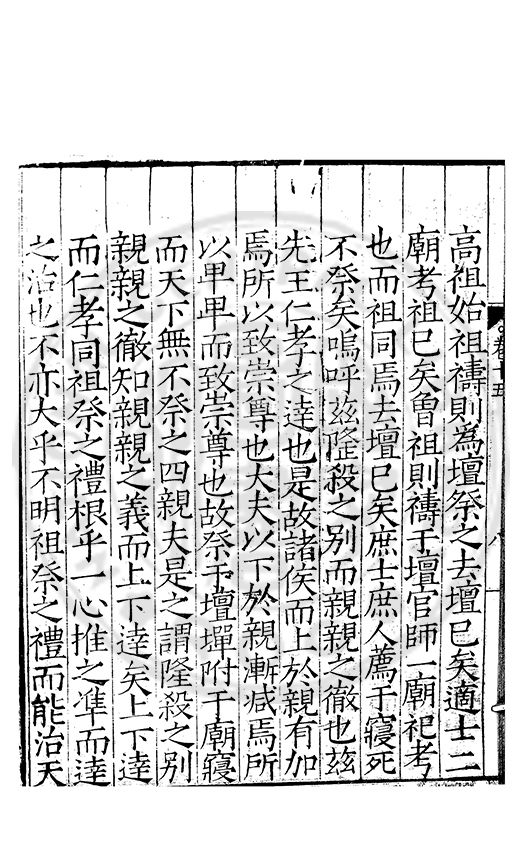 高祖始祖禱則為壇祭之去壇已矣適士二
廟考祖已矣魯祖則禱于壇官師一廟祀考
也而祖同焉去壇已矣庶士庶人薦于寢死
不祭矣嗚呼茲隆殺之别而親親之徹也茲
先王仁孝之達也是故諸侯而上於親有加
焉所以致崇尊也大夫以下於親漸减焉所
以甲甲而致崇尊也故祭于壇墠附于廟寢
而天下無不祭之四親夫是之謂隆殺之别
親親之徹知親親之義而上下逹矣上下逹
而仁孝同祖祭之禮根乎一心推之凖而逹
之治也不亦大乎不明祖祭之禮而能治天
卷十五
八